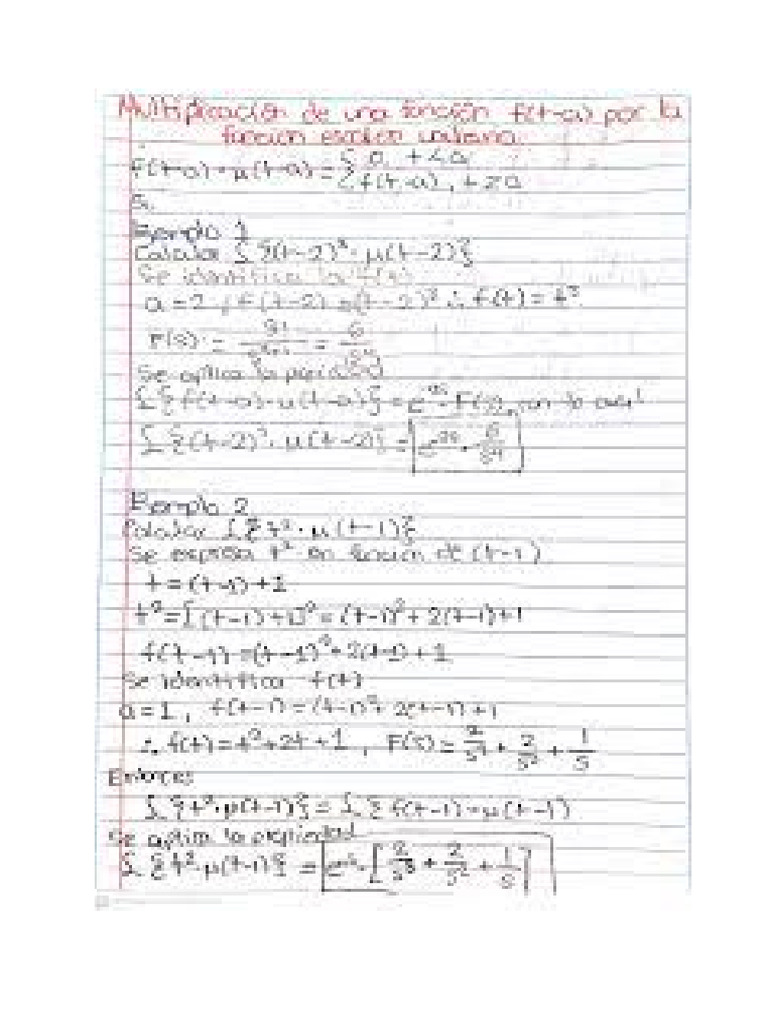 Multiplicación de una función f(t-a) por la
función escalón unitario
f(t-a) · μ(t-a) = { 0, t<a
{ f(t-a), t≥a
Ejemplo 1
Calcular £{(t-2)³ · μ(t-2)}
Se identifica la f(t)
a=2, f(t-2)=(t-2)³ ∴ f(t)=t³
F(s) = 3!/s³⁺¹ = 6/s⁴
Se aplica la
£{f(t-a)·μ(t-a)} = e⁻ᵃˢ · F(s), con lo cual
£{(t-2)³ · μ(t-2)} = e⁻²ˢ · 6/s⁴
Ejemplo 2
Calcular £{t² · μ(t-1)}
Se expresa t² en función de (t-1)
t=(t-1)+1
t²=[(t-1)+1]²=(t-1)²+2(t-1)+1
f(t-1)=(t-1)²+2(t-1)+1
Se identifica f(t)
a=1, f(t-1)=(t-1)²+2(t-1)+1
∴ f(t)=t²+2t+1, F(s)=2/s³+2/s²+1/s
Entonces
£{t²·μ(t-1)} = £{f(t-1)·μ(t-1)}
Se aplica la propiedad
£{t²·μ(t-1)} = e⁻ˢ·[2/s³+2/s²+1/s]